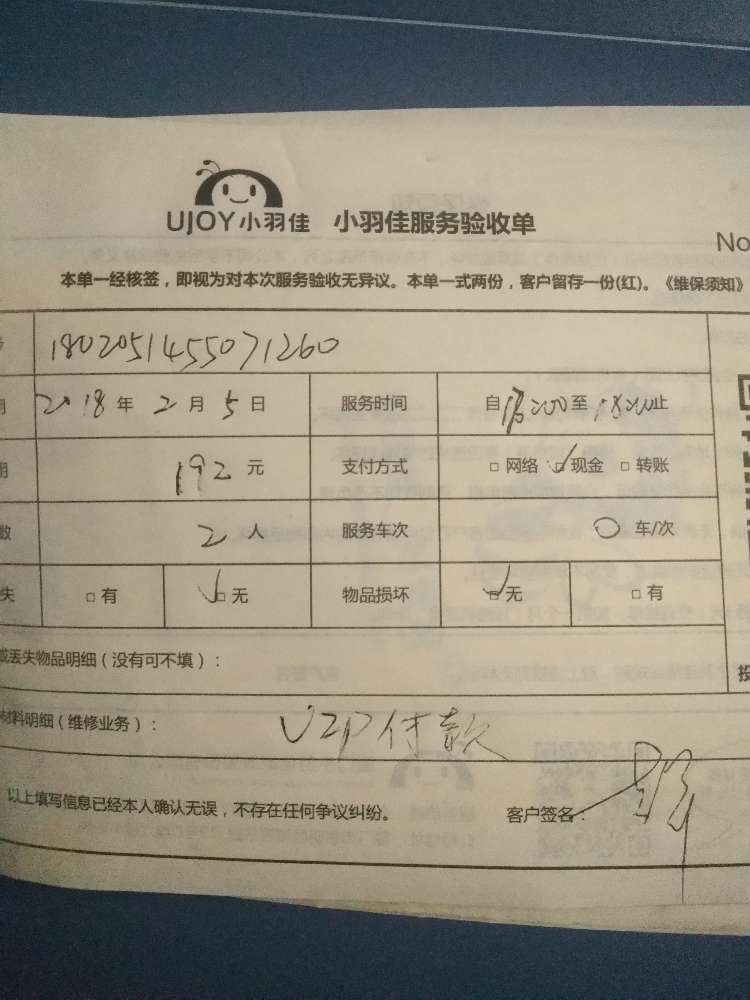 UJOY小羽佳 小羽佳服务验收单
No
本单一经核签，即视为对本次服务验收无异议。本单一式两份，客户留存一份(红)。《维保须知》
1802051455071260
2018年2月5日 服务时间 自 至18:00止
192元 支付方式 □网络 □现金 □转账
数 2人 服务车次 0车/次
失 □有 □无 物品损坏 □无 □有
或丢失物品明细（没有可不填）：
投
材料明细（维修业务）： VIP付款
以上填写信息已经本人确认无误，不存在任何争议纠纷。 客户签名：